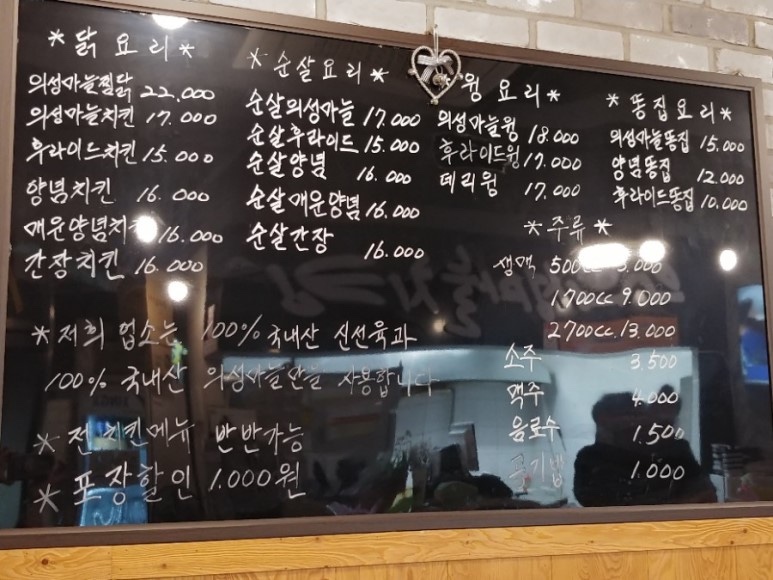 * 닭 요 리 *
의성마늘찜닭 22,000
의성마늘치킨 17.000
후라이드치킨 15.000
양념치킨 16.000
매운양념치킨 16.000
간장치킨 16.000
* 순살요리 *
순살의성마늘 17.000
순살후라이드 15.000
순살양념 16.000
순살매운양념 16.000
순살간장 16.000
윙 요리 *
의성마늘윙 18.000
후라이드윙 17.000
데리윙 17.000
* 똥집요리 *
의성마늘똥집 15.000
양념똥집 12.000
후라이드똥집 10,000
* 주류 *
생맥 500cc
1700cc 9.000
2700cc 13.000
소주 3,500
맥주 4.000
음료수 1.500
공기밥 1.000
* 저희 업소는 100% 국내산 신선육과
100% 국내산 의성마늘만을 사용합니다
* 전 치킨메뉴 반반가능
* 포장할인 1.000원